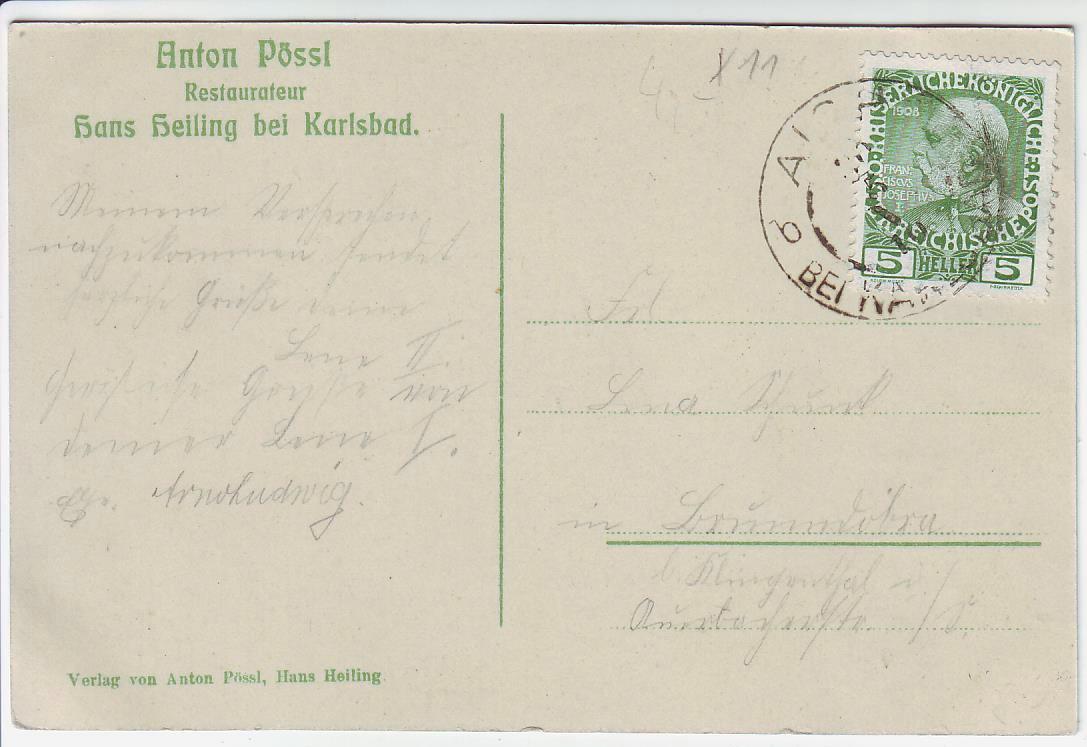 Anton Pössl
Restaurateur
Hans Heiling bei Karlsbad.
X11
KAISERLICHE KÖNIGLICHE POST
1908
FRAN
CISCVS
IOSEPHVS
I.
ÖSTERREICHISCHE
5 HELLER 5
AICH
BEI KA
Meinem Versprechen
nachzukommen sendet
herzliche Grüße deine
Lene II.
Grüße von
deiner Lene I.
Arno Ludwig.
Frl
Lena Schunk
in Brunndöbra
b. Klingenthal i/
Auerbacherstr. /S.
Verlag von Anton Pössl, Hans Heiling